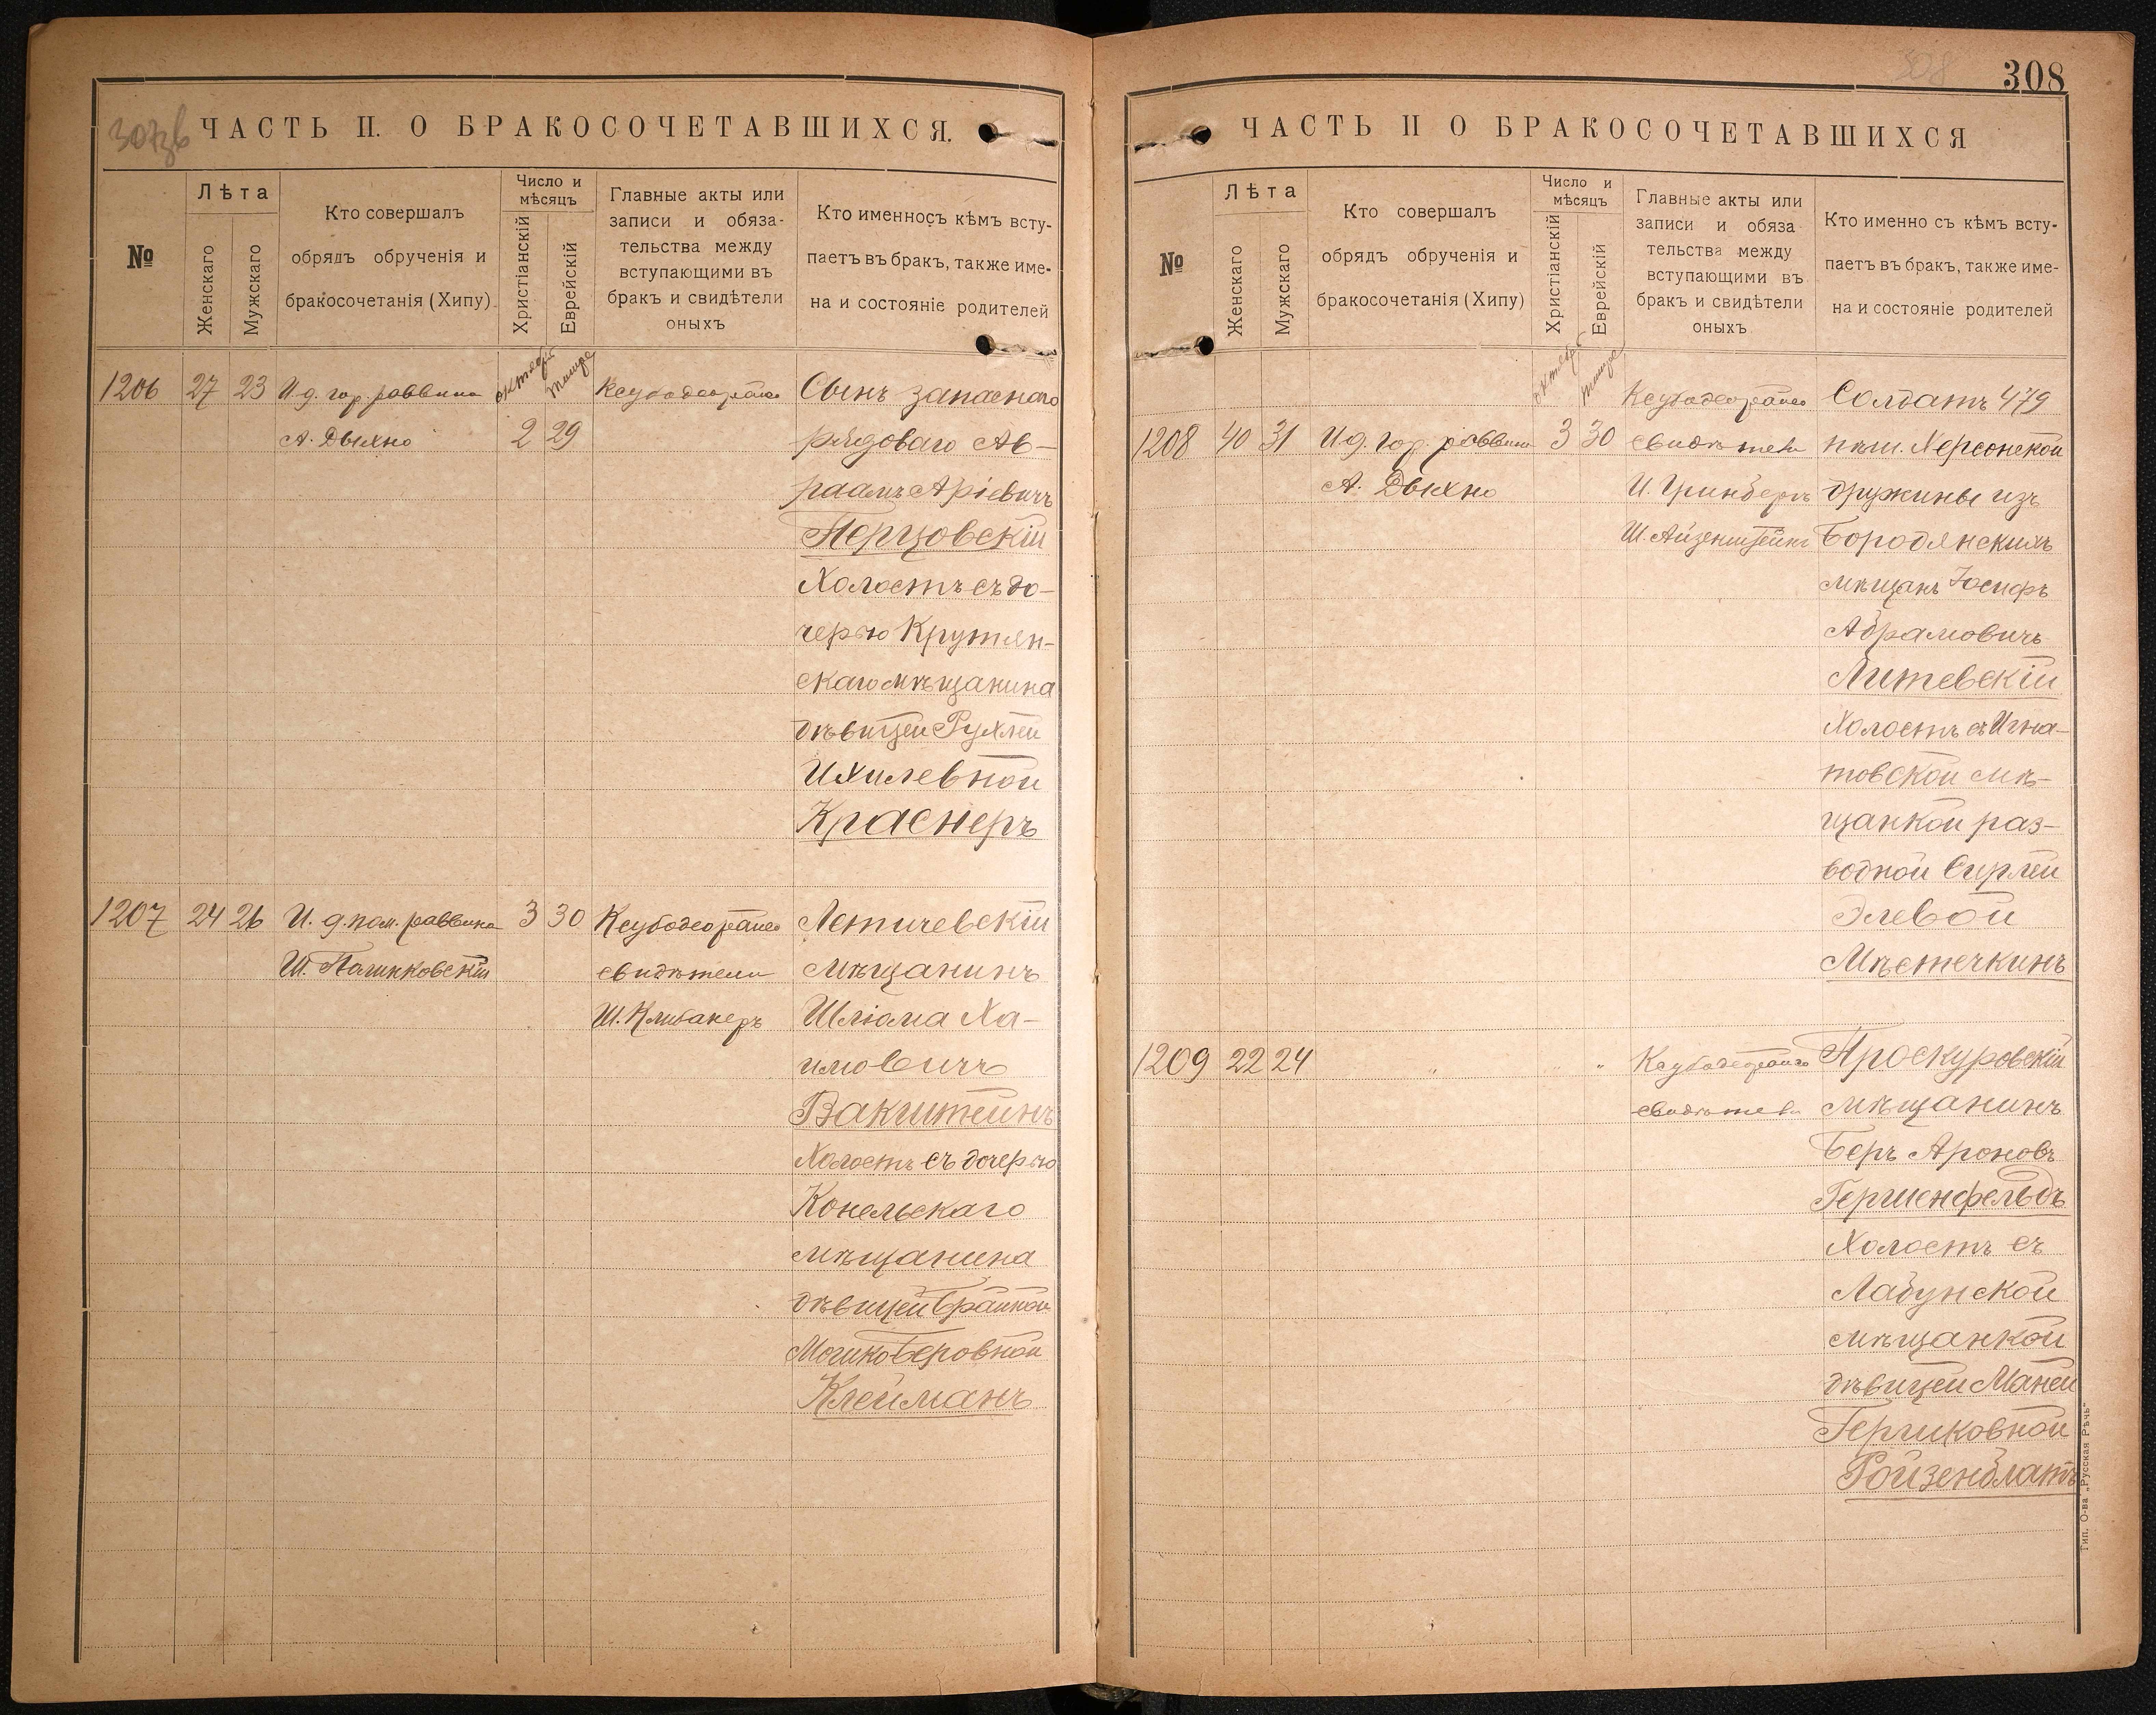 307зв
ЧАСТЬ II. О БРАКОСОЧЕТАВШИХСЯ.
№
Лѣта
Женскаго
Мужскаго
Кто совершалъ
обрядъ обрученія и
бракосочетанія (Хипу)
Число и
мѣсяцъ
Христіанскій
Еврейскій
Главные акты или
записи и обяза-
тельства между
вступающими въ
бракъ и свидѣтели
оныхъ
Кто именносъ кѣмъ всту-
паетъ въ бракъ, также име-
на и состояніе родителей
1206 27 23 И. д. гор. раввина октября тишре Сынъ запаснаго
А. Двихно 2 29 рядоваго Ав-
раамъ Аріевичъ
Перцовскій
Холостъ съ до-
черью Крутян-
скаго мѣщанина
дѣвицей Рухлей
Ихилевной
Краснеръ
1207 24 26 И. д. пом. раввина 3 30 Летичевскій
Ш. Полинковскій свидѣтели мѣщанинъ
Ш. Кливанеръ Шліома Ха-
имовичъ
Вакштейнъ
Холостъ съ дочерью
Конельскаго
мѣщанина
дѣвицей Брайной
Мошко Беровной
Клейманъ
308
308
ЧАСТЬ II О БРАКОСОЧЕТАВШИХСЯ
№
Лѣта
Женскаго
Мужскаго
Кто совершалъ
обрядъ обрученія и
бракосочетанія (Хипу)
Число и
мѣсяцъ
Христіанскій
Еврейскій
Главные акты или
записи и обяза
тельства между
вступающими въ
бракъ и свидѣтели
оныхъ
Кто именно съ кѣмъ всту-
паетъ въ бракъ, также име-
на и состояніе родителей
октября тишре Солдатъ 479
1208 40 31 И. д. гор. раввина 3 30 свидѣтели пѣш. Херсонской
А. Двихно И. Гринбергъ дружины изъ
Ш. Айзенштейнъ Бородянскихъ
мѣщанъ Іосифъ
Абрамовичъ
Литевскій
Холостъ съ Игна-
товской мѣ-
щанкой раз-
водной Сирлей
Элевой
Мѣстечкинъ
1209 22 24 " " Проскуровскій
свидѣтели мѣщанинъ
Беръ Ароновъ
Гершенфельдъ
Холостъ съ
Лабунской
мѣщанкой
дѣвицей Маней
Гершковной
Ройзенблатъ
Тип. О-ва „Русская Рѣчь“